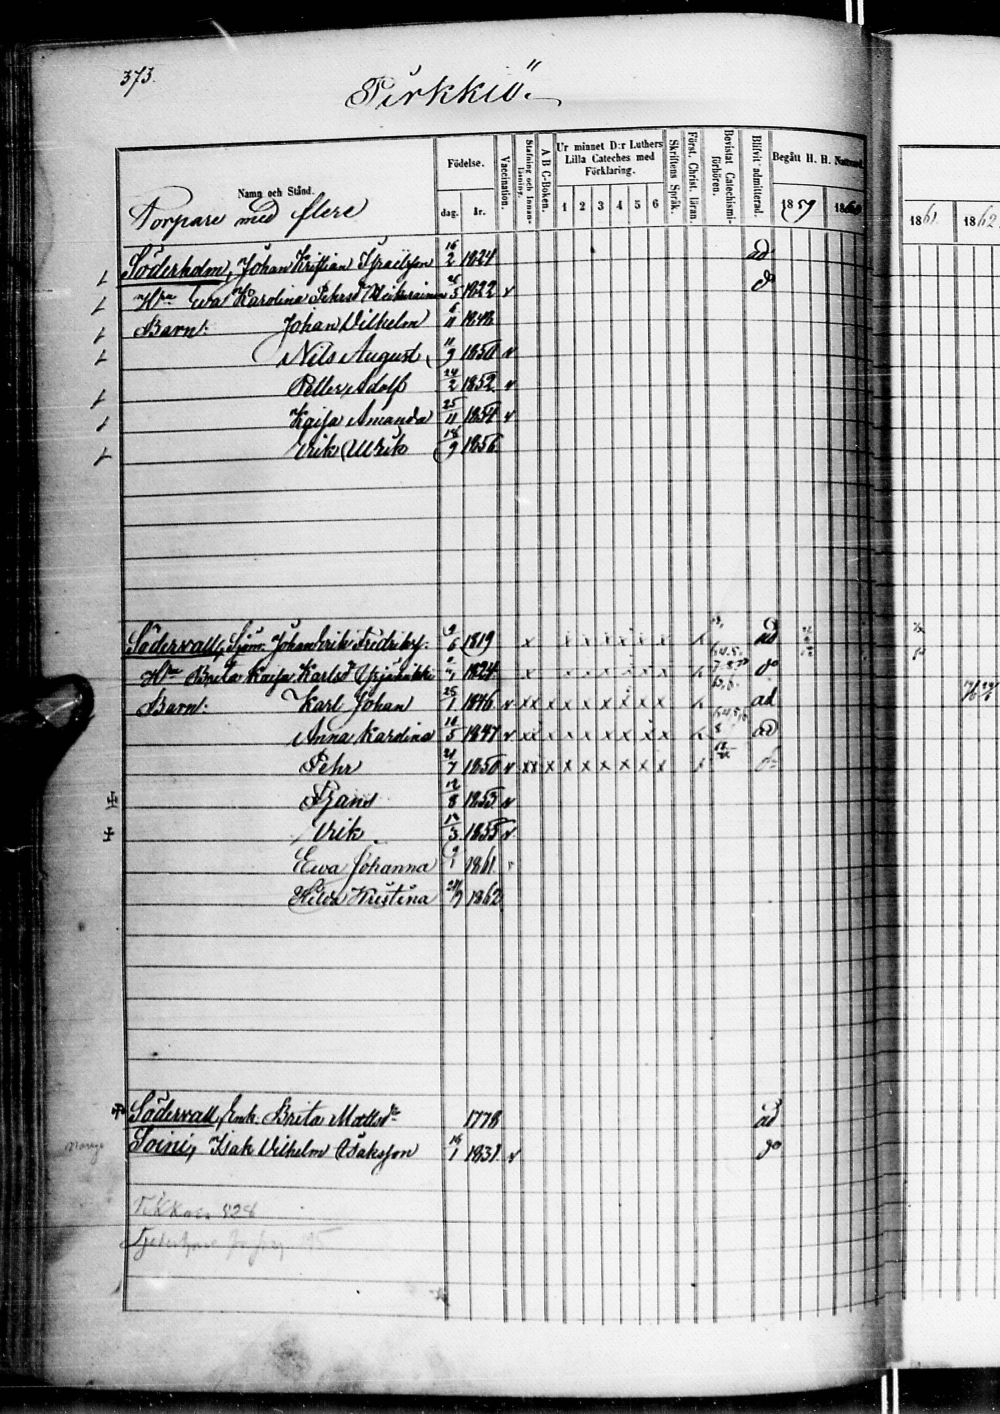 373.
Pirkkiö.
Namn och Stånd.
Torpare med flere
Födelse.
dag. år.
Vaccination.
Stafning och Innan-läsning.
A B C-Boken.
Ur minnet D:r Luthers Lilla Cateches med Förklaring.
1 2 3 4 5 6
Skriftens Språk.
Först. Christ. läran.
Bevistat Catechismi-förhören.
Blifvit admitterad.
Begått H. H. Nattvard.
1859 1860 1861 1862
Söderholm, Johan Kristian Israelsson 16/2 1824 ad
H:ru Ewa Karolina Petersd 5 1822 v do
Barn: Johan Vilhelm 11 1848
Nils August 11/9 1850 v
Petter Adolf 24/2 1852 v
Kajsa Amanda 25/11 1854 v
Erik Ulrik 18/9 1856
Södervall, Johan Erik Fredriksf. 6 1819 x x x x x x x x ad
H:ru Brita Kajsa Karlsd 1824 x x x x x x x x do
Barn: Karl Johan 25/1 1846 v xx x x x x x x x x ad
Anna Karolina 18/5 1847 v xx x x x x x x x x ad
Pehr 21/7 1850 v xx x x x x x x x x do
Frans 12/8 1853 v
Erik 3 1855 v
Ewa Johanna 9/1 1861
Hilda Kristina 9 1862
Södervall, Enk. Brita Mattsdr 1778 ad
Soini, Isak Vilhelm Isaksson 16/1 1831 v do
528